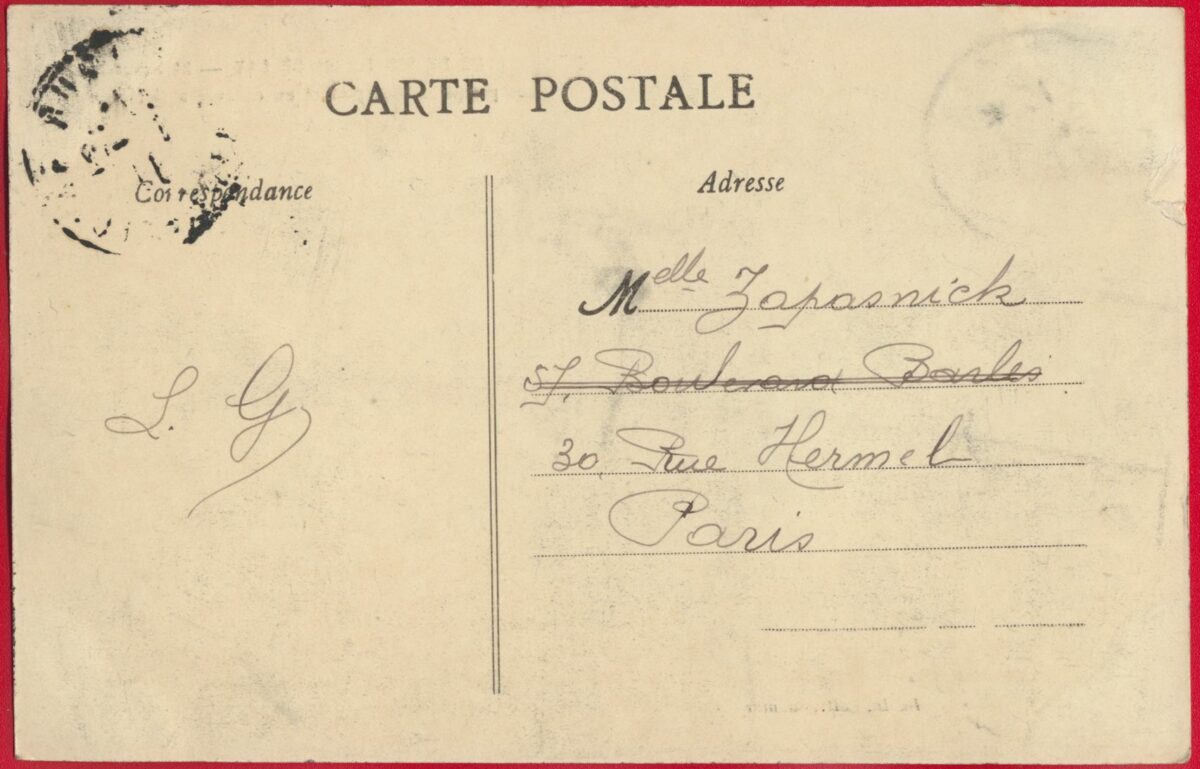 CARTE POSTALE
Correspondance
Adresse
Melle Zapasnick
57, Boulevard Barbes
30, Rue Hermel
Paris
L. G